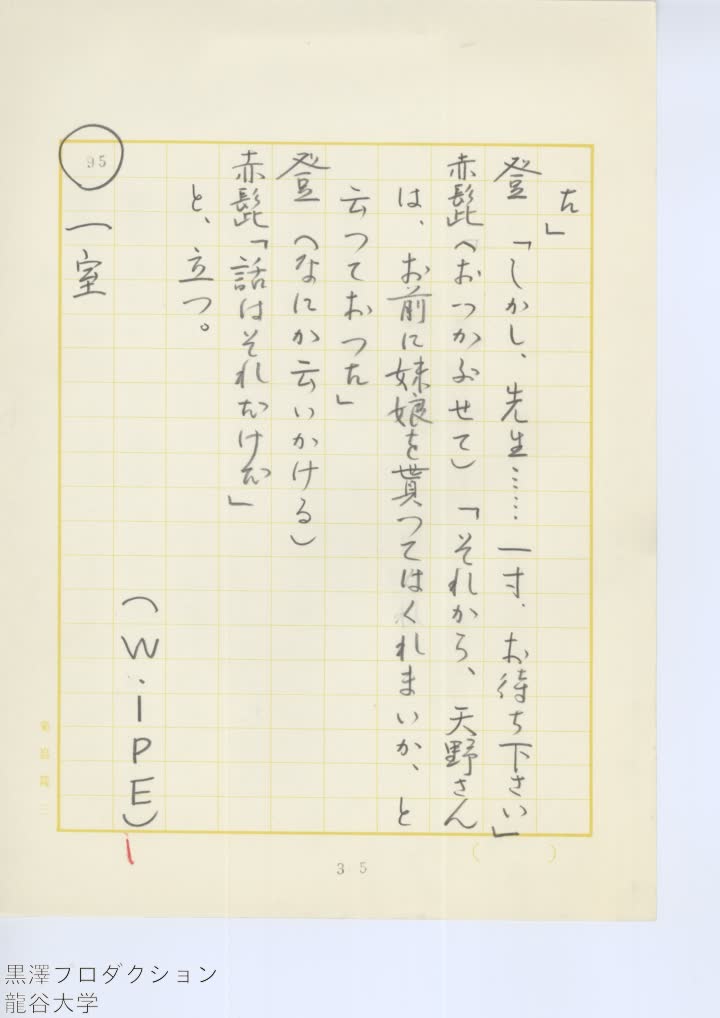 た」
登　「しかし、先生……一寸、お待ち下さい」
赤髭（おっかぶせて）「それから、天野さん
は、お前に妹娘を貰つてはくれまいか、と
云つておつた」
登　（なにか云いかける）
赤髭「話はそれだけだ」
と、立つ。
（WIPE）
95　一室
35
菊島隆三
黒澤プロダクション
龍谷大学